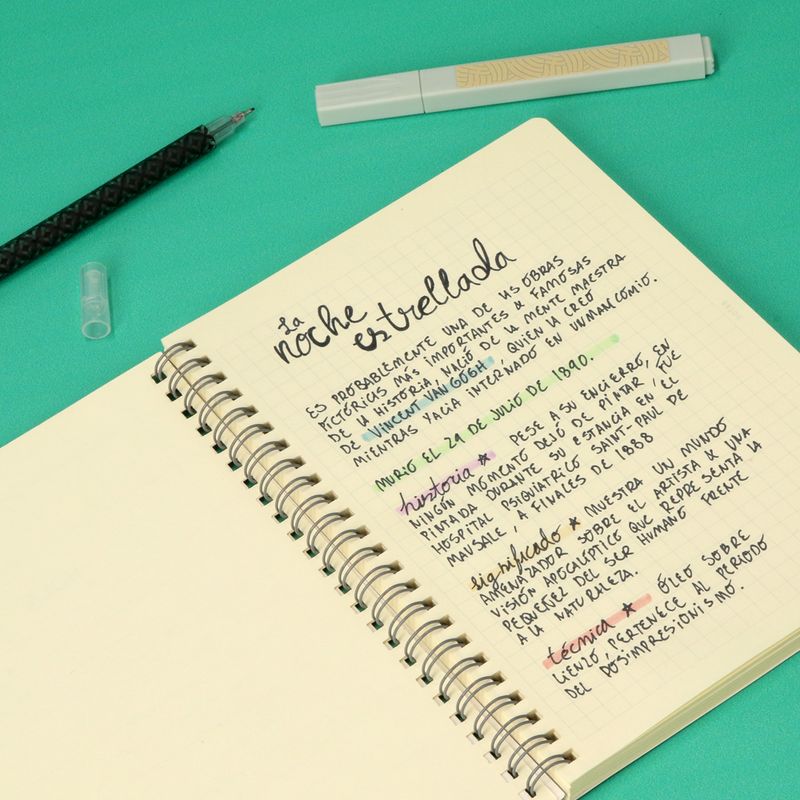 La
noche
estrellada
ES PROBABLEMENTE UNA DE LAS OBRAS
PICTÓRICAS MÁS IMPORTANTES & FAMOSAS
DE LA HISTORIA, NACIÓ DE LA MENTE MAESTRA
DE VINCENT VAN GOGH, QUIEN LA CREÓ
MIENTRAS YACÍA INTERNADO EN UN MANICOMIO.
MURIÓ EL 29 DE JULIO DE 1890.
historia ★ PESE A SU ENCIERRO, EN
NINGÚN MOMENTO DEJÓ DE PINTAR, FUE
PINTADA DURANTE SU ESTANCIA EN EL
HOSPITAL PSIQUIÁTRICO SAINT-PAUL DE
MAUSALE, A FINALES DE 1888
significado ★ MUESTRA UN MUNDO
AMENAZADOR SOBRE EL ARTISTA & UNA
VISIÓN APOCALÍPTICO QUE REPRESENTA LA
PEQUEÑEZ DEL SER HUMANO FRENTE
A LA NATURALEZA.
técnica ★ ÓLEO SOBRE
LIENZO, PERTENECE AL PERIODO
DEL POSIMPRESIONISMO.